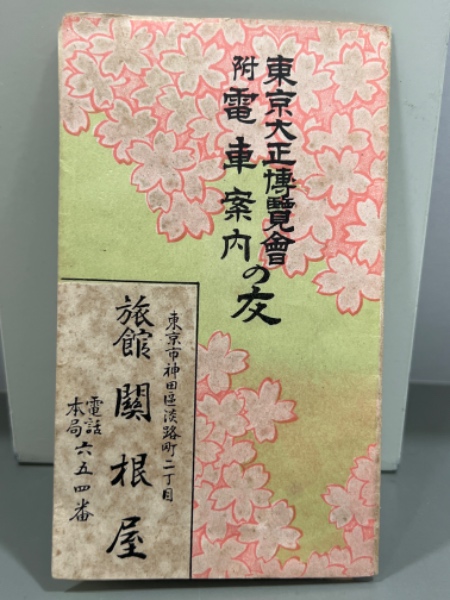 東京大正博覽會
附電車案内の友
東京市神田區淡路町二丁目
旅館 關根屋
電話
本局 六五四番